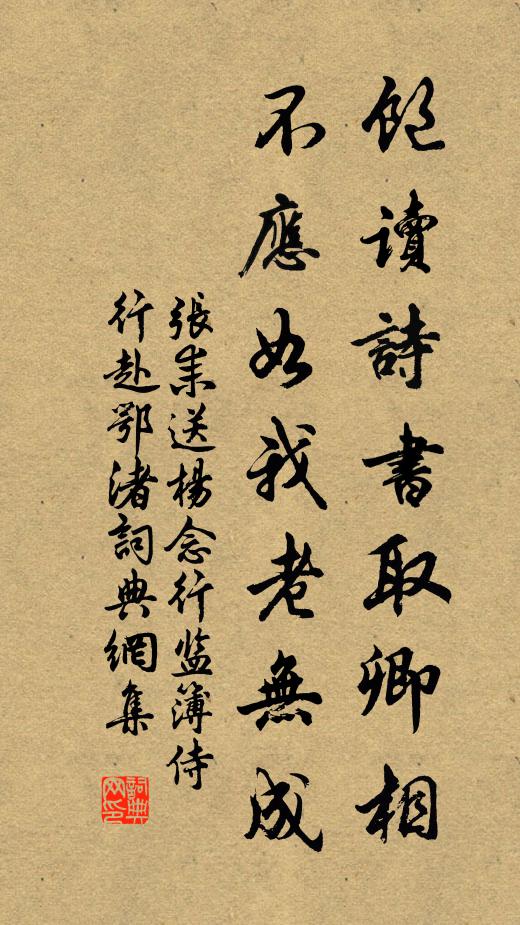 飽讀詩書取卿相
不應如我老無成
張耒送楊念行监簿侍
行赴鄂渚詞典網集
詞典网印